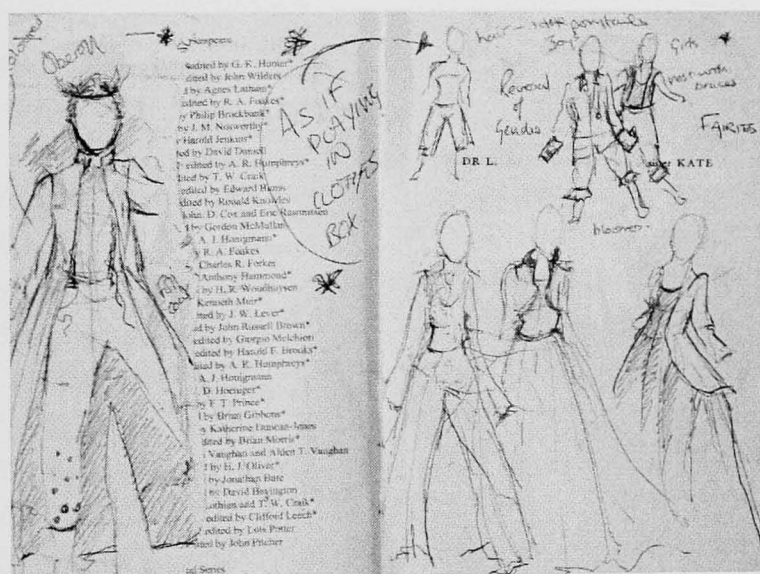 Oberon
edited by G. K. Hunter*
edited by John Wilders
d by Agnes Latham*
edited by R. A. Foakes*
y Philip Brockbank*
by J. M. Nosworthy*
Harold Jenkins*
ted by David Daniell
edited by A. R. Humphreys*
dited by T. W. Craik
edited by Edward Burns
edited by Ronald Knowles
John D. Cox and Eric Rasmussen
by Gordon McMullan
A. J. Honigmann*
y R. A. Foakes
Charles R. Forker
Anthony Hammond*
by H. R. Woudhuysen
Kenneth Muir*
ited by J. W. Lever*
ed by John Russell Brown*
edited by Giorgio Melchiori
edited by Harold F. Brooks*
dited by A. R. Humphreys*
A. J. Honigmann
D. Hoeniger*
by F. T. Prince*
d by Brian Gibbons*
y Katherine Duncan-Jones
edited by Brian Morris*
Vaughan and Alden T. Vaughan
d by H. J. Oliver*
by Jonathan Bate
by David Bevington
othian and T. W. Craik*
edited by Clifford Leech*
edited by Lois Potter
edited by John Pitcher
Series
AS IF
PLAYING
IN
CLOTHES
BOX
hair
ponytails
Boys
Girls
Reversal
of
Gender
braces
FAIRIES
DR L.
KATE
bloomers